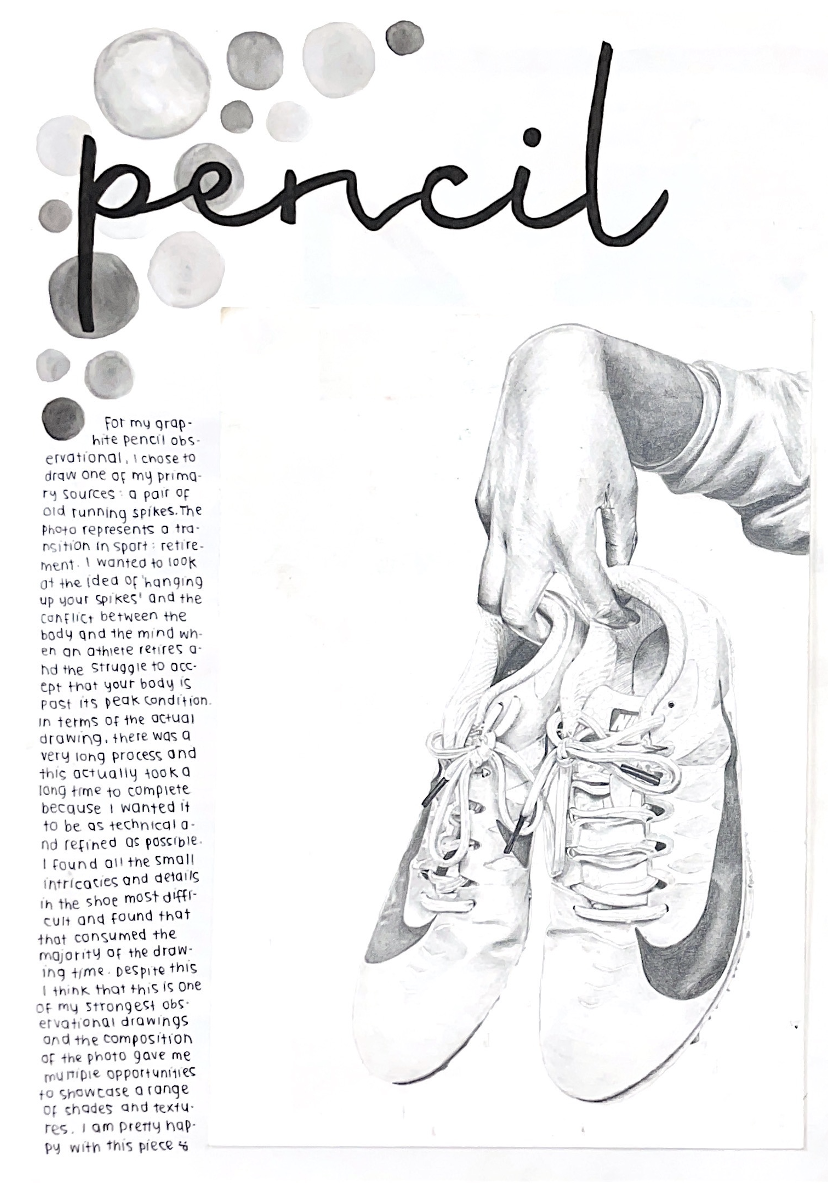 pencil
For my grap-
hite pencil obs-
ervational, I chose to
draw one of my prima-
ry sources : a pair of
old running spikes. The
photo represents a tra-
nsition in sport : retire-
ment. I wanted to look
at the idea of 'hanging
up your spikes' and the
conflict between the
body and the mind wh-
en an athlete retires a-
nd the struggle to acc-
ept that your body is
past its peak condition.
In terms of the actual
drawing, there was a
very long process and
this actually took a
long time to complete
because I wanted it
to be as technical a-
nd refined as possible.
I found all the small
intricaties and details
in the shoe most diffi-
cult and found that
that consumed the
majority of the draw-
ing time. Despite this
I think that this is one
of my strongest obs-
ervational drawings
and the composition
of the photo gave me
multiple opportunities
to showcase a range
of shades and textu-
res. I am pretty hap-
py with this piece